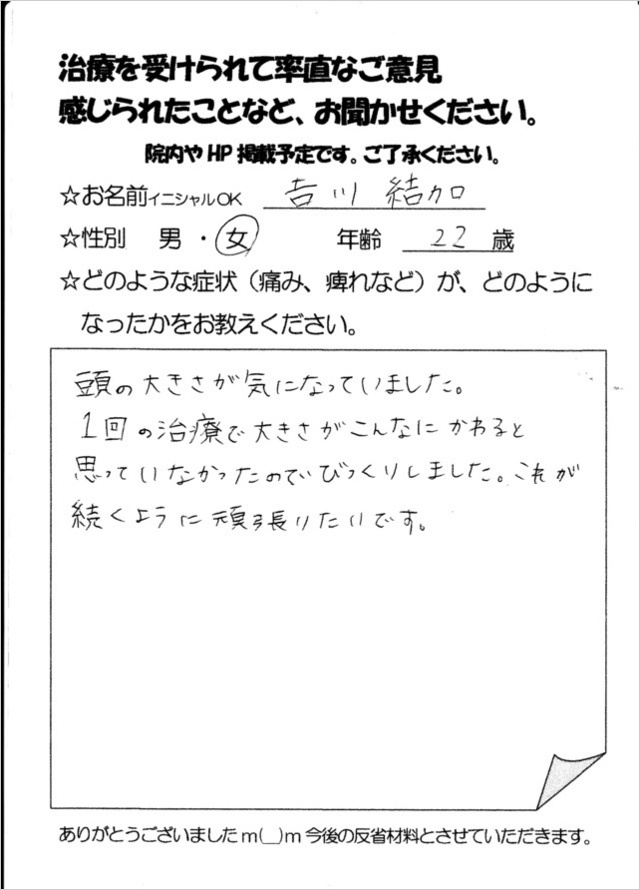 治療を受けられて率直なご意見
感じられたことなど、お聞かせください。
院内や HP 掲載予定です。ご了承ください。
☆お名前イニシャルOK 吉川 結加
☆性別 男・女 年齢 22 歳
☆どのような症状（痛み、痺れなど）が、どのように
なったかをお教えください。
頭の大きさが気になっていました。
1回の治療で大きさがこんなにかわると
思っていなかったのでびっくりしました。これが
続くように頑張りたいです。
ありがとうございましたm(__)m今後の反省材料とさせていただきます。